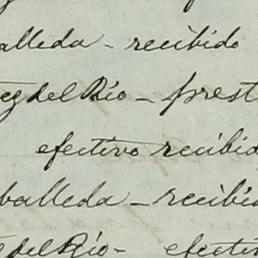 alleda - recibido
eg del Rio - prest
efectivo recibid
balleda - recibid
del Rio - efecti